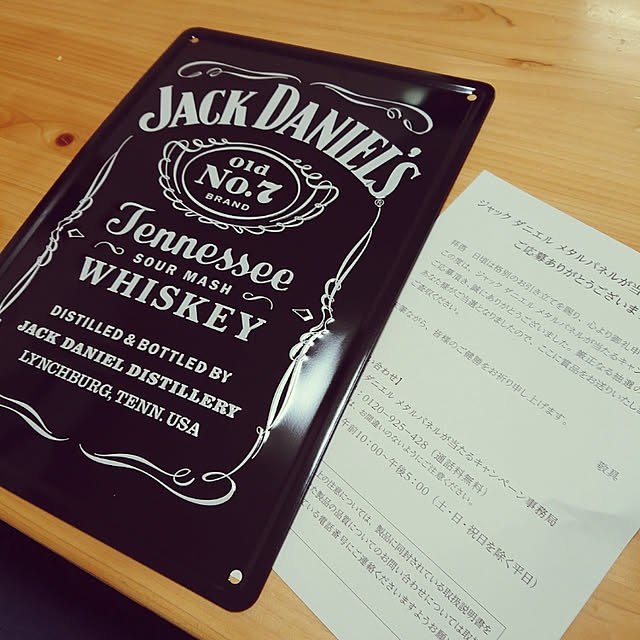 JACK DANIEL'S
®
Old
No.7
BRAND
Tennessee
SOUR MASH
WHISKEY
DISTILLED & BOTTLED BY
JACK DANIEL DISTILLERY
LYNCHBURG, TENN. USA
ジャック ダニエル メタルパネルが当
ご応募ありがとうございま
拝啓 日頃は格別のお引き立てを賜り、心より御礼申
この度は、ジャック ダニエル メタルパネルが当たるキャン
ご応募頂き、誠にありがとうございました。厳正なる抽選
あなた様がご当選となりましたので、ここに賞品をお送りいたし
ご査収ください。
筆ながら、皆様のご健勝をお祈り申し上げます。
敬具
合わせ】
ダニエル メタルパネルが当たるキャンペーン事務局
0120-925-428（通話料無料）
お間違いのないようにご注意ください。
午前10:00～午後5:00（土・日・祝日を除く平日）
の注意については、製品に同封されている取扱説明書を
た製品の品質についてのお問い合わせについては
いる電話番号にご連絡くださいますようお願